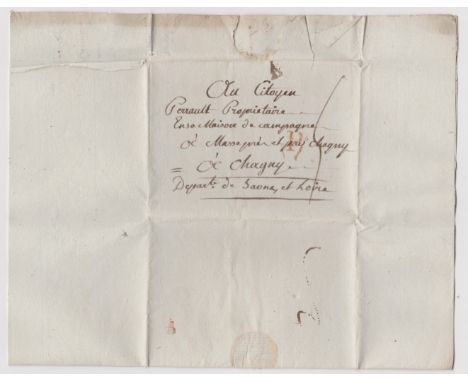 Au Citoyen
Perrault Propriétaire
En sa Maison de campagne
à Masse près et près Chagny
à Chagny
Depart.t de Saone, et Loire